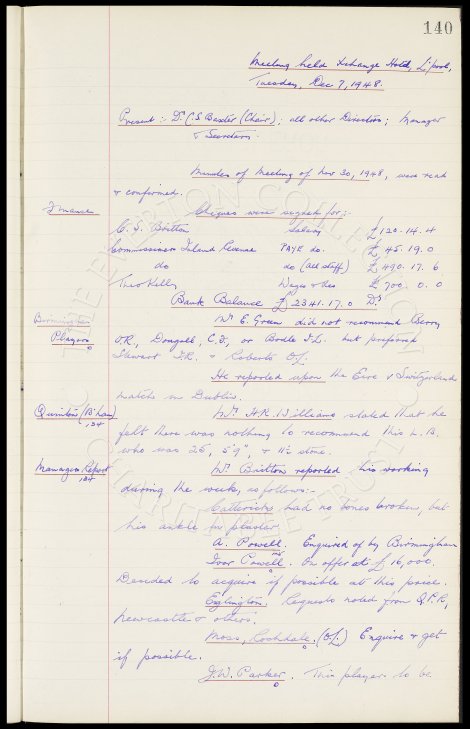 140
Meeting held Exchange Hotel, L'pool,
Tuesday, Dec 7, 1948.
Present :- Dr. C.S. Baxter (Chair); all other Directors; Manager
& Secretary.
Minutes of Meeting of Nov 30, 1948, were read
& confirmed.
Finance
Cheques were signed for:-
C. S. Britton Salary £120. 14. 4
Commissioners Inland Revenue PAYE do. £45. 19. 0
do do (all staff) £490. 17. 6
Theo Kelly Wages &c £700. 0. 0
Bank Balance £2341. 17. 0 Dr
Birmingham
Players
Mr. E. Green did not recommend Berry
O.R., Dougall, C.F., or Bodle I.L. but preferred
Stewart I.R. & Roberts O.L.
He reported upon the Eire v Switzerland
match in Dublin.
Quinton (B'ham)
134
Mr. H.R. Williams stated that he
felt there was nothing to recommend this L.B.
who was 25, 5'9", & 11½ stone.
Managers Report
134
Mr. Britton reported his working
during the week, as follows:-
Catterick had no bones broken, but
his ankle in plaster
A. Powell. Enquired of by Birmingham
Ivor Powell. On offer at £16,000.
Decided to acquire if possible at this price.
Eglington. Requests noted from Q.P.R,
Newcastle & others.
Moss, Rochdale. (O.L.) Enquire & get
if possible.
J.W. Parker. This player to be
THE EVERTON COLLECTION
CHARITABLE TRUST